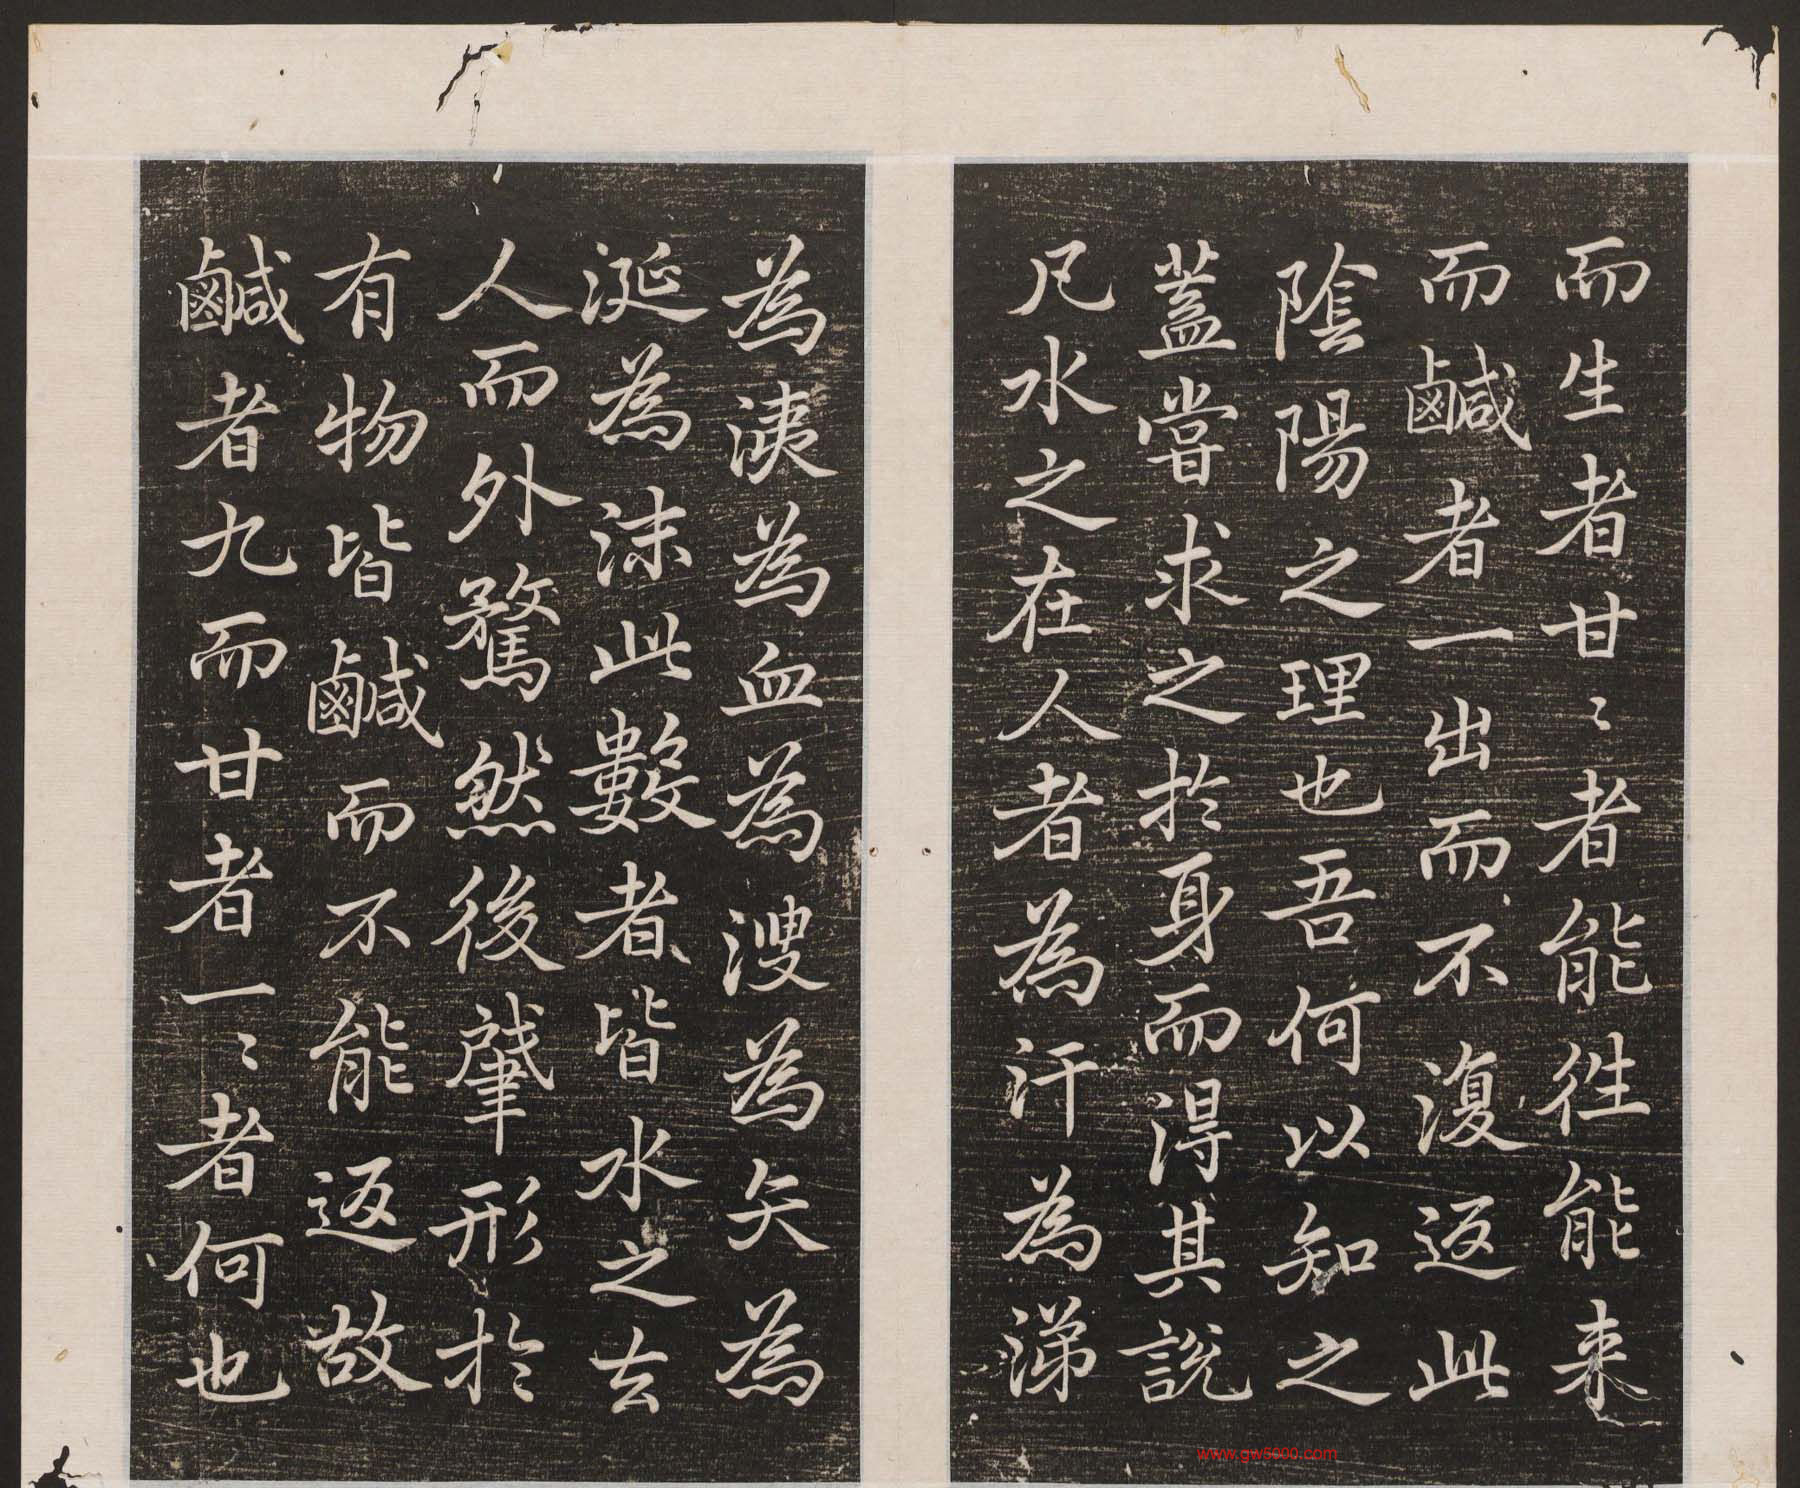 而生者甘〻者能往能来
而鹹者一出而不復返此
陰陽之理也吾何以知之
蓋嘗求之於身而得其說
凡水之在人者為汗為涕
為洟為血為溲為矢為
涎為沫此數者皆水之去
人而外騖然後肇形於
有物皆鹹而不能返故
鹹者九而甘者一〻者何也
www.gw5000.com